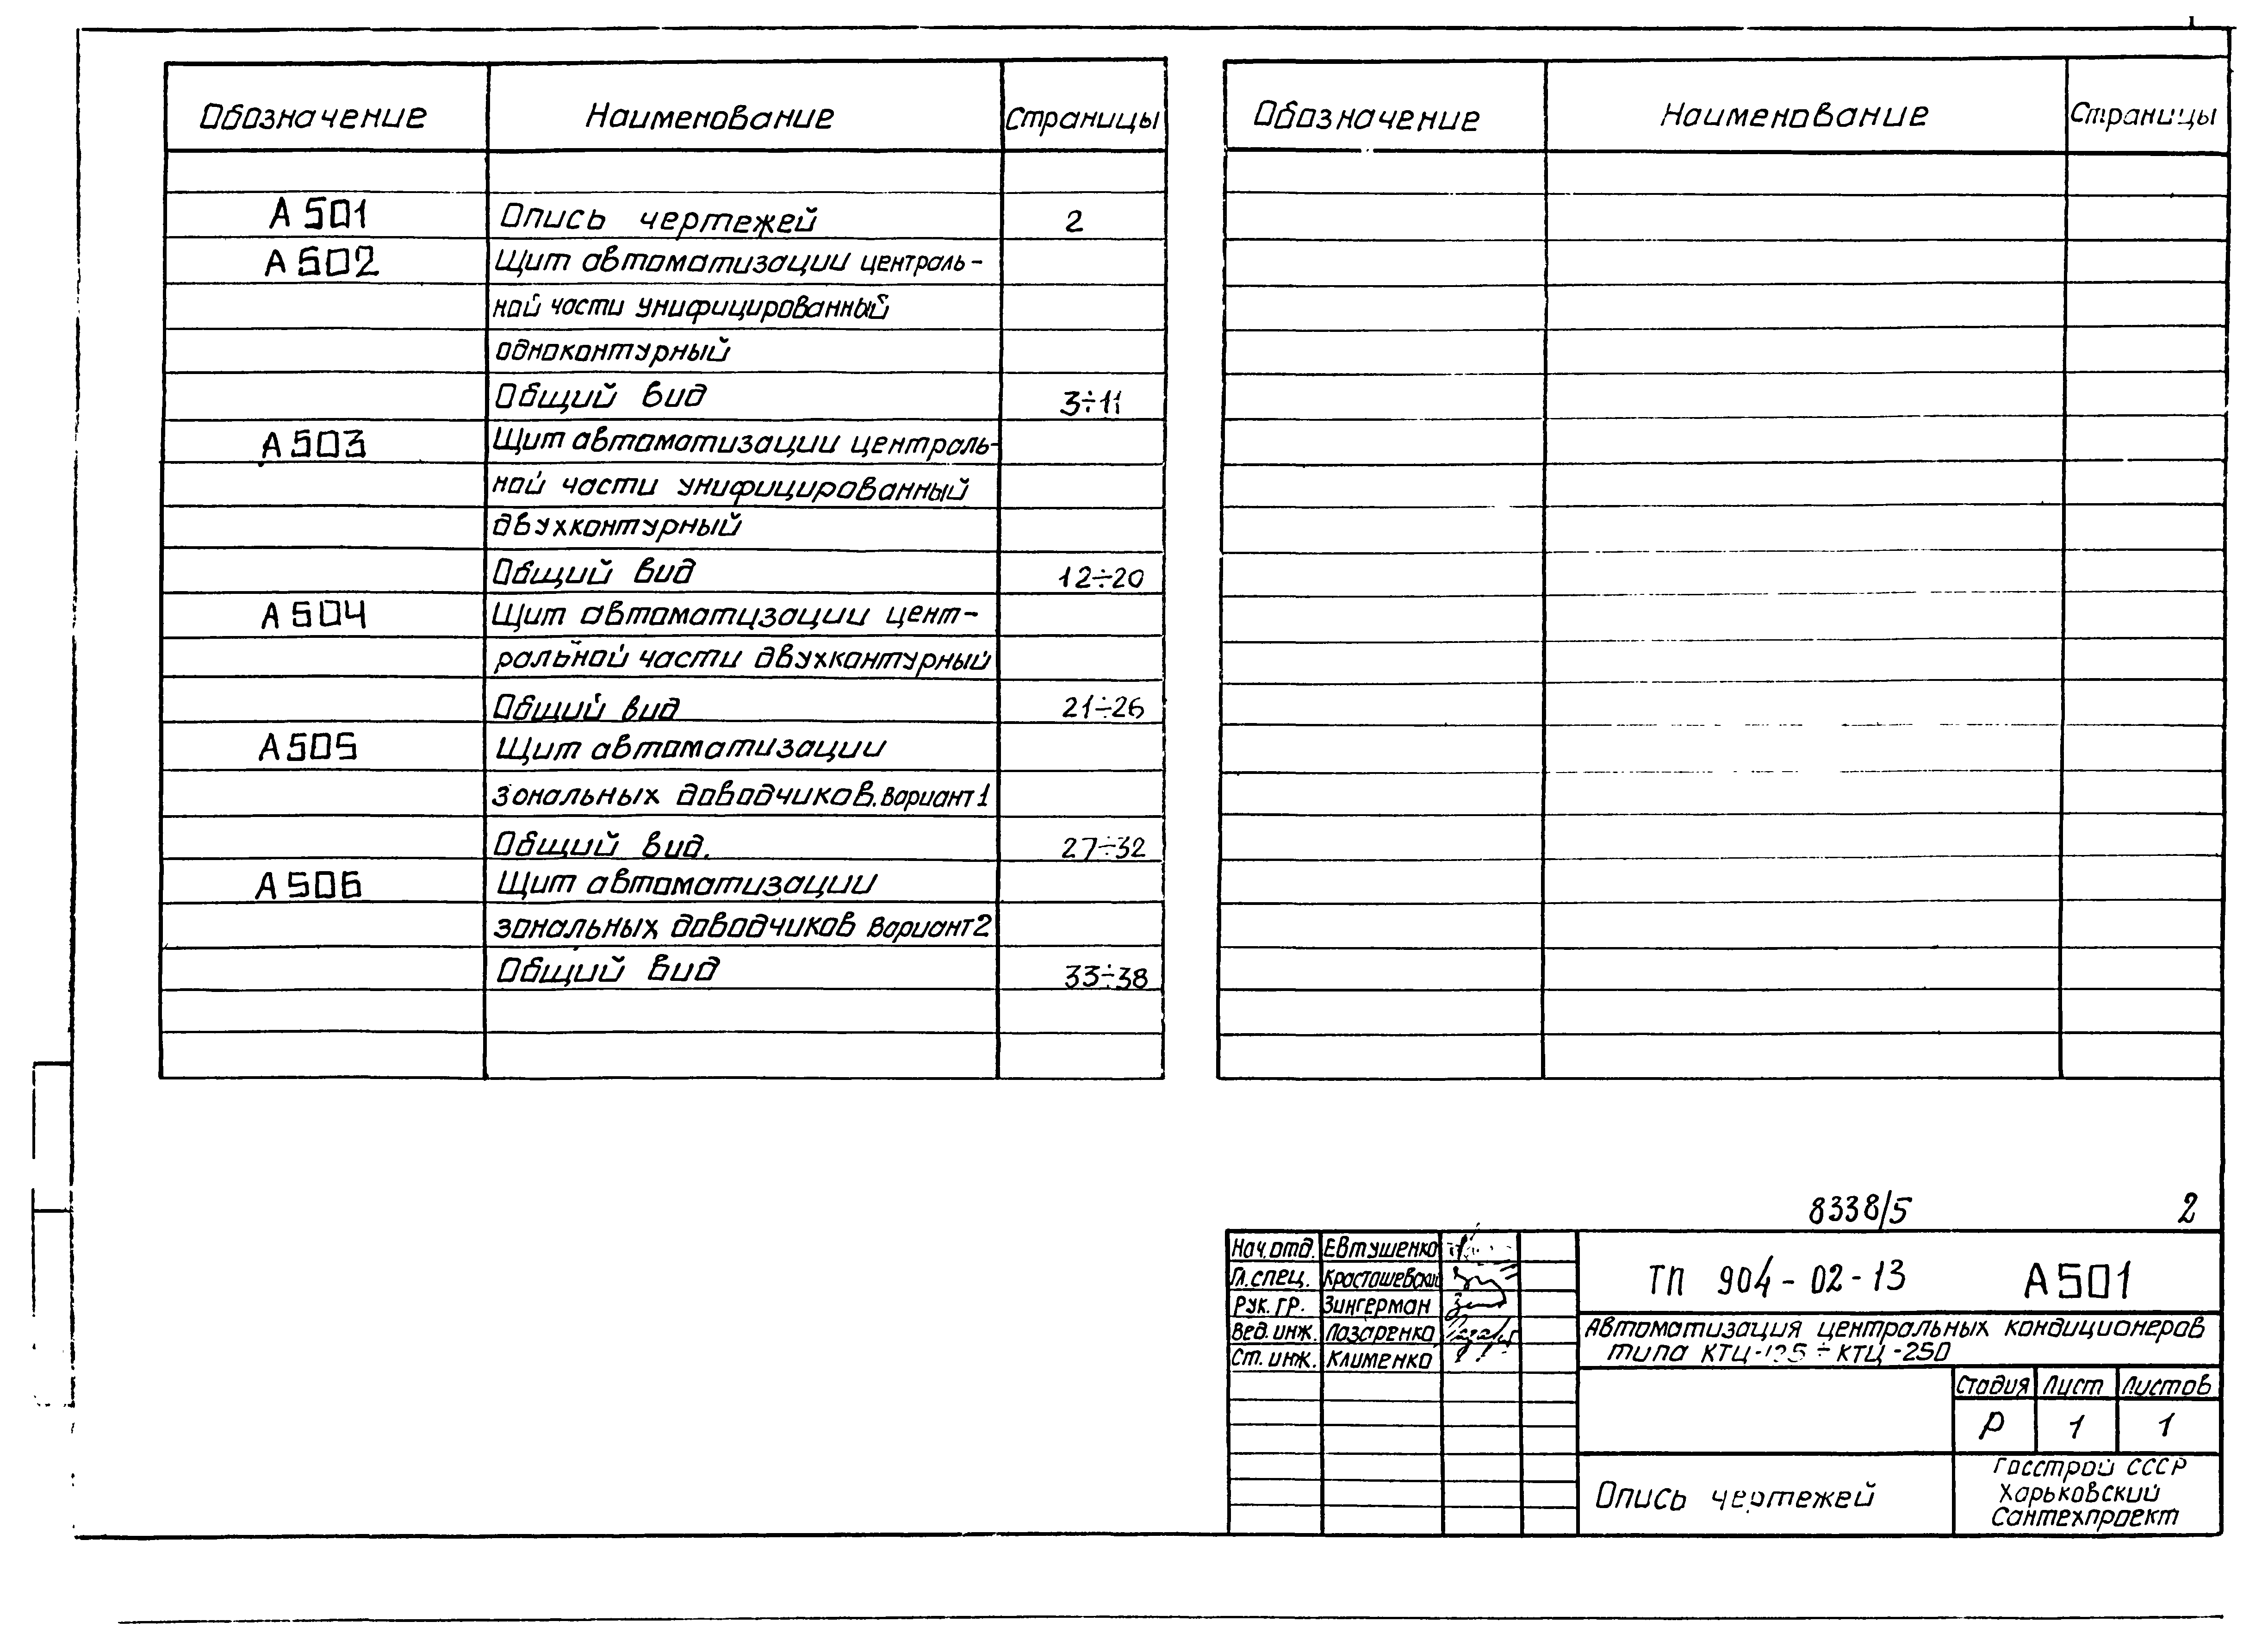 1
Обозначение Наименование Страницы
А501 Опись чертежей 2
А502 Щит автоматизации централь-
ной части унифицированный
одноконтурный
Общий вид 3÷11
А503 Щит автоматизации централь-
ной части унифицированный
двухконтурный
Общий вид 12÷20
А504 Щит автоматизации цент-
ральной части двухконтурный
Общий вид 21÷26
А505 Щит автоматизации
зональных доводчиков. Вариант 1
Общий вид. 27÷32
А506 Щит автоматизации
зональных доводчиков Вариант 2
Общий вид 33÷38
Обозначение Наименование Страницы
8338/5 2
Нач. отд. Евтушенко
Гл. спец. Красташевский
Рук. гр. Зингерман
Вед. инж. Лазаренко
Ст. инж. Клименко
ТП 904-02-13 А501
Автоматизация центральных кондиционеров
типа КТЦ-125 ÷ КТЦ-250
Стадия Лист Листов
Р 1 1
Опись чертежей
Госстрой СССР
Харьковский
Сантехпроект